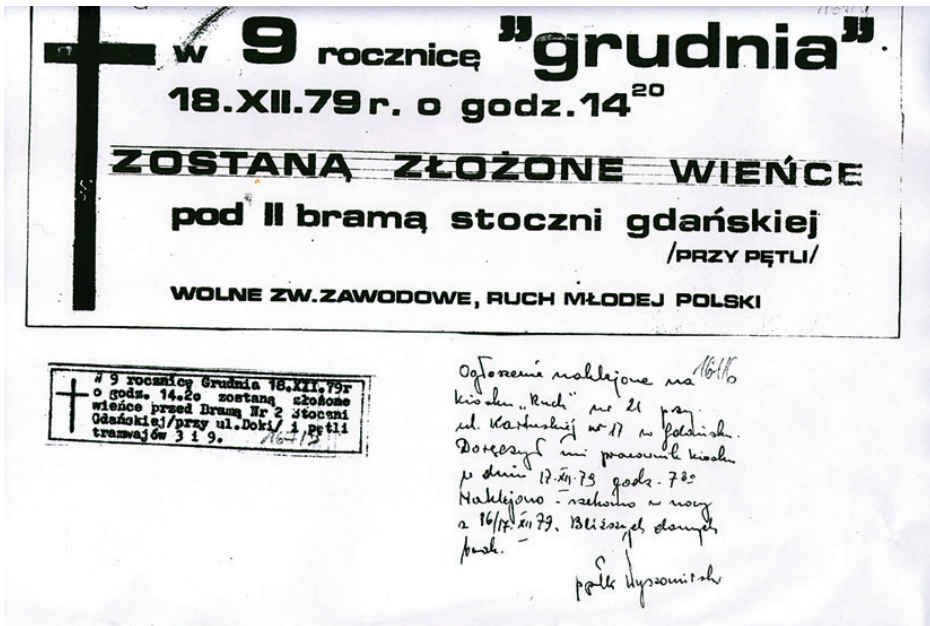 w 9 rocznicę "grudnia".
18.XII.79 r. o godz. 14²⁰
ZOSTANĄ ZŁOŻONE WIEŃCE
pod II bramą stoczni gdańskiej
/PRZY PĘTLI/
WOLNE ZW. ZAWODOWE, RUCH MŁODEJ POLSKI
W 9 rocznicę Grudnia 18.XII.79r
o godz. 14.20 zostaną złożone
wieńce przed Bramą Nr 2 Stoczni
Gdańskiej/przy ul.Doki/ i pętli
tramwajów 3 i 9.
Ogłoszenie naklejone na
kiosku „Ruch” nr 21 przy
ul. Kartuskiej nr 17 w Gdańsku.
Doręczył mi pracownik kiosku
w dniu 17.XII.79 godz. 7³⁰
Naklejono - rzekomo w nocy
z 16/17.XII.79. Bliższych danych
brak.
ppłk